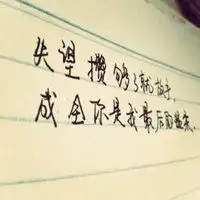 失望攒够了就放手,
成全你是我最后的温柔.